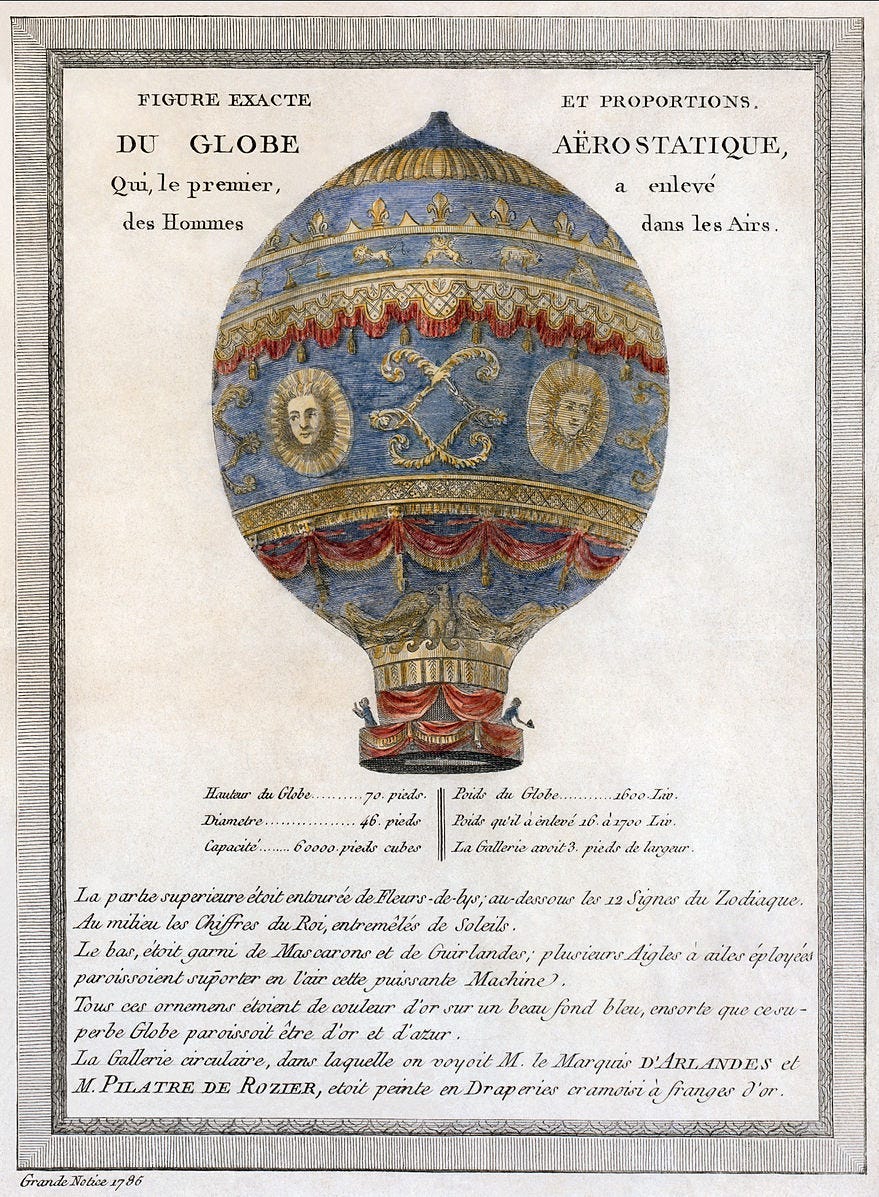 FIGURE EXACTE ET PROPORTIONS.
DU GLOBE AËROSTATIQUE,
Qui, le premier, a enlevé
des Hommes dans les Airs.
Hauteur du Globe..........70. pieds.
Diametre.................. 46. pieds
Capacité........60000. pieds cubes
Poids du Globe...........1600. Liv.
Poids qu'il à enlevé 16. à 1700 Liv.
La Gallerie avoit 3. pieds de largeur.
La partie superieure étoit entourée de Fleurs-de-lys; au-dessous les 12 Signes du Zodiaque.
Au milieu les Chiffres du Roi, entremêlés de Soleils.
Le bas, étoit garni de Mascarons et de Guirlandes; plusieurs Aigles à ailes éployées
paroissoient suporter en l'air cette puissante Machine.
Tous ces ornemens étoient de couleur d'or sur un beau fond bleu, ensorte que ce su-
perbe Globe paroissoit être d'or et d'azur.
La Gallerie circulaire, dans laquelle on voyoit M. le Marquis D'ARLANDES et
M. PILATRE DE ROZIER, etoit peinte en Draperies cramoisi à franges d'or.
Grande Notice 1786